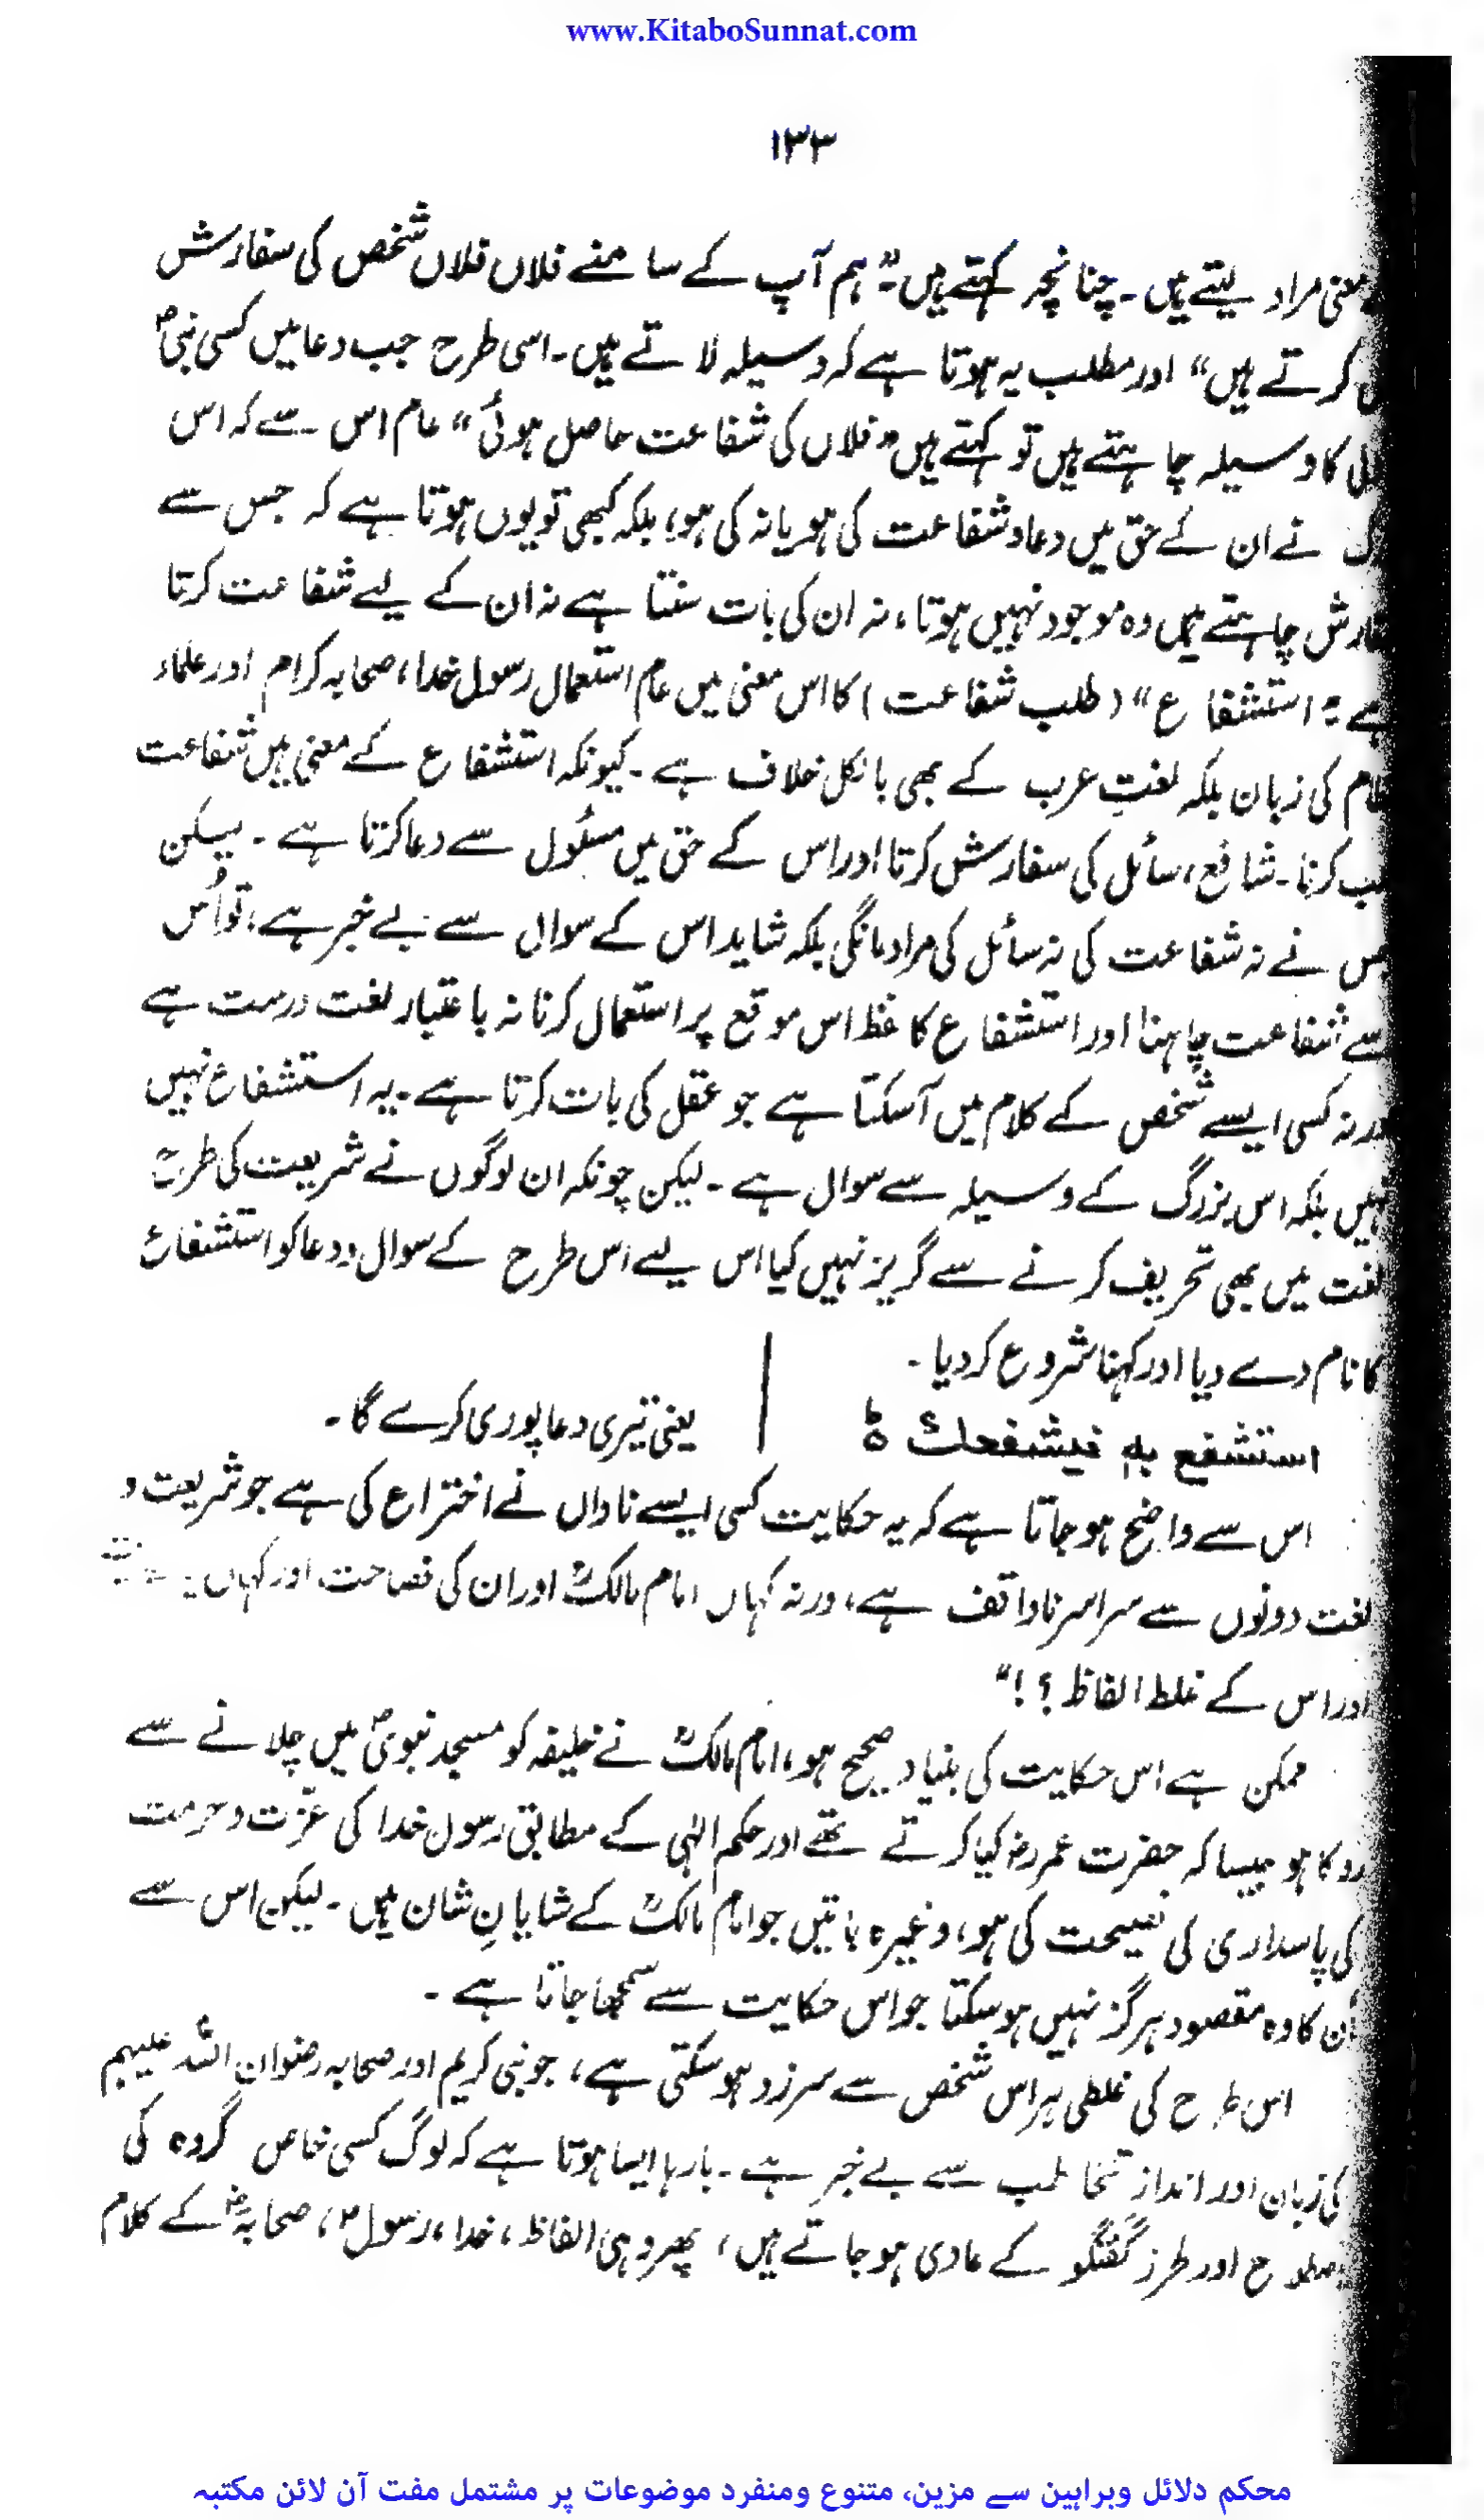 www.KitaboSunnat.com
۱۳۳
معنی مراد لیتے ہیں۔ چنانچہ کہتے ہیں۔ "ہم آپ کے سامنے فلاں فلاں شخص کی سفارش
کرتے ہیں" اور مطلب یہ ہوتا ہے کہ وسیلہ لاتے ہیں۔ اسی طرح جب دعا میں کسی نبیؐ
کا وسیلہ چاہتے ہیں تو کہتے ہیں "فلاں کی شفاعت حاصل ہوئی" عام اس سے کہ اس
نے ان کے حق میں دعاو شفاعت کی ہو یا نہ کی ہو، بلکہ کبھی تو یوں ہوتا ہے کہ جس سے
چاہتے ہیں وہ موجود نہیں ہوتا، نہ ان کی بات سنتا ہے نہ ان کے لیے شفاعت کرتا
ہے "استشفاع" (طلب شفاعت) کا اس معنی میں عام استعمال رسول خدا، صحابہ کرام اور علماء
کی زبان بلکہ لغتِ عرب کے بھی بالکل خلاف ہے۔ کیونکہ استشفاع کے معنی ہیں شفاعت
کرنا۔ شافع، سائل کی سفارش کرتا اور اس کے حق میں مسئول سے دعا کرتا ہے۔ لیکن
جس نے نہ شفاعت کی نہ سائل کی مراد مانگی بلکہ شاید اس کے سوال سے بے خبر ہے، تو اُس
سے شفاعت چاہنا اور استشفاع کا لفظ اس موقع پر استعمال کرنا نہ باعتبار لغت درست ہے
نہ کسی ایسے شخص کے کلام میں آسکتا ہے جو عقل کی بات کرتا ہے۔ یہ استشفاع نہیں
بلکہ اس بزرگ کے وسیلہ سے سوال ہے۔ لیکن چونکہ ان لوگوں نے شریعت کی طرح
لغت میں بھی تحریف کرنے سے گریز نہیں کیا اس لیے اس طرح کے سوال و دعا کو استشفاع
کا نام دے دیا اور کہنا شروع کردیا۔
استشفع بہ فیشفعك ہ | یعنی تیری دعا پوری کرے گا۔
اس سے واضح ہو جاتا ہے کہ یہ حکایت کسی ایسے ناداں نے اختراع کی ہے جو شریعت و
لغت دونوں سے سراسر ناواقف ہے، ورنہ کہاں امام مالکؒ اور ان کی فصاحت اور کہاں یہ
اور اس کے غلط الفاظ؟!"
ممکن ہے اس حکایت کی بنیاد صحیح ہو، امام مالکؒ نے خلیفہ کو مسجد نبویؐ میں چلانے سے
روکا ہو جیسا کہ حضرت عمرؓ کیا کرتے تھے اور حکم الٰہی کے مطابق رسول خدا کی عزّت و حرمت
کی پاسداری کی نصیحت کی ہو، وغیرہ باتیں جو امام مالکؒ کے شایانِ شان ہیں۔ لیکن اس سے
اُن کا وہ مقصود ہرگز نہیں ہوسکتا جو اس حکایت سے سمجھا جاتا ہے۔
اس طرح کی غلطی ہر اس شخص سے سرزد ہوسکتی ہے، جو نبی کریم اور صحابہ رضوان اللہ علیہم
کی زبان اور انداز تخاطب سے بے خبر ہے۔ بارہا ایسا ہوتا ہے کہ لوگ کسی خاص گروہ کی
اصطلاح اور طرز گفتگو کے عادی ہو جاتے ہیں، پھر وہی الفاظ، خدا، رسولؐ، صحابہؓ کے کلام
محکم دلائل وبراہین سے مزین، متنوع ومنفرد موضوعات پر مشتمل مفت آن لائن مکتبہ